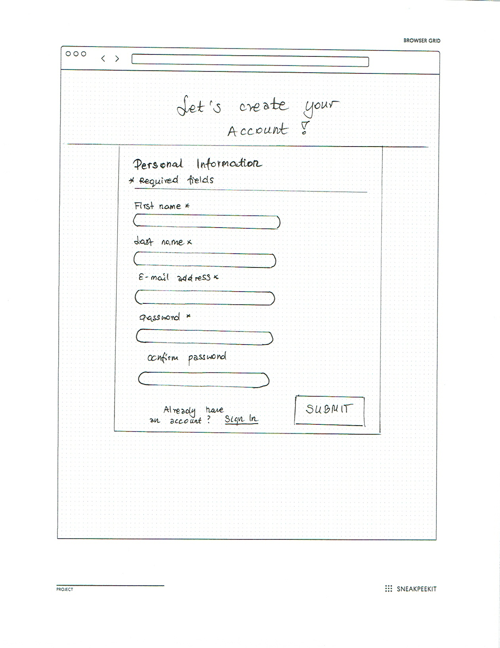 BROWSER GRID
Let's create your
Account !
Personal Information
* Required fields
First name *
Last name *
E-mail address *
Password *
confirm password
Already have
an account ? Sign In
SUBMIT
PROJECT
SNEAKPEEKIT